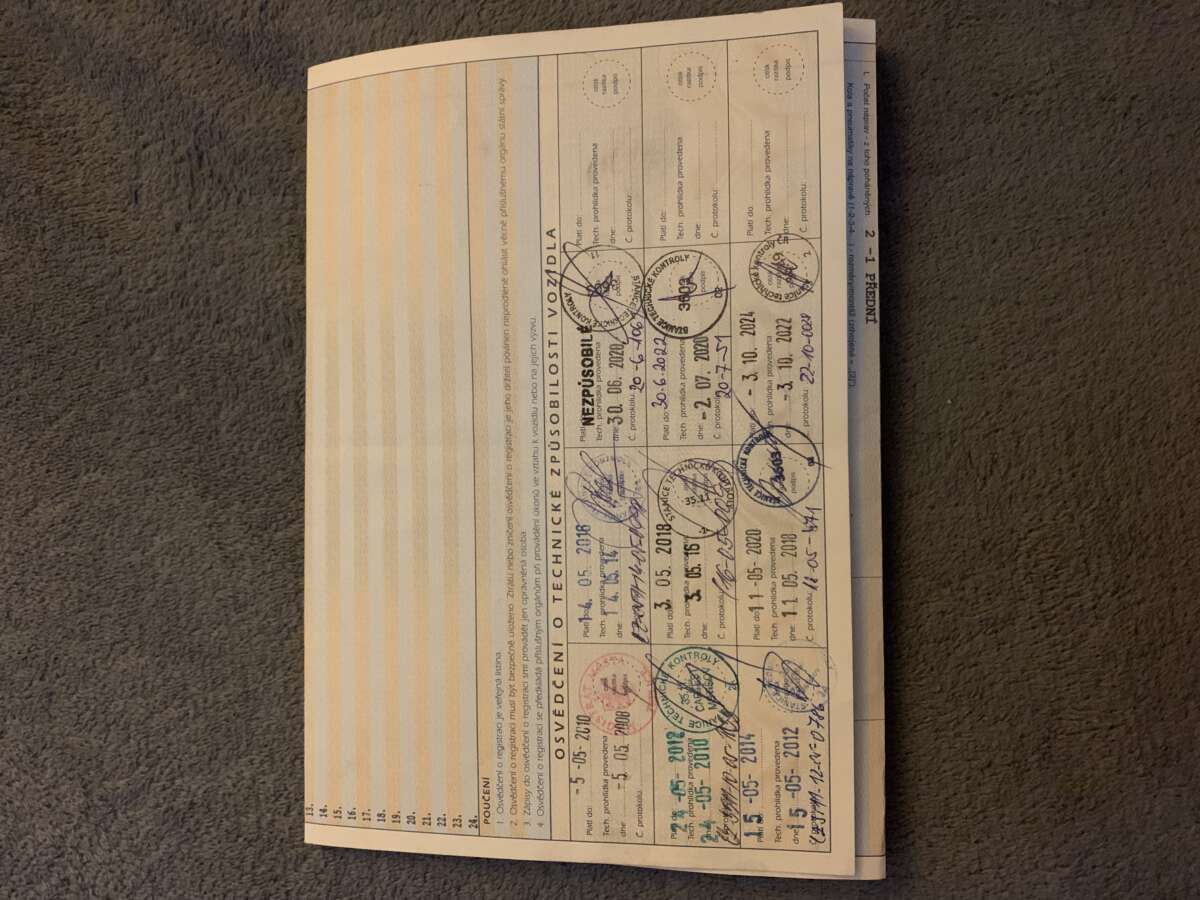 13.
14.
15.
16.
17.
18.
19.
20.
21.
22.
23.
24.
POUČENÍ
1. Osvědčení o registraci je veřejná listina.
2. Osvědčení o registraci musí být bezpečně uloženo. Ztrátu nebo zničení osvědčení o registraci je jeho držitel povinen neprodleně ohlásit věcně příslušnému orgánu státní správy.
3. Zápisy do osvědčení o registraci smí provádět jen oprávněná osoba.
4. Osvědčení o registraci se předkládá příslušným orgánům při provádění úkonů ve vztahu k vozidlu nebo na jejich výzvu.
OSVĚDČENÍ O TECHNICKÉ ZPŮSOBILOSTI VOZIDLA
Platí do: -5-05-2010
Tech. prohlídka provedena
dne: -5.05.2008
Č. protokolu:
Platí do: 14. 05. 2018
Tech. prohlídka provedena
dne: 14. 05. 14
Platí do: NEZPŮSOBILÉ
Tech. prohlídka provedena
dne: 30. 06. 2020
Č. protokolu: 20-6-106
STANICE TECHNICKÉ KONTROLY
Platí do:
Tech. prohlídka provedena
dne:
Č. protokolu:
otisk
razítka
podpis
24-05-2012
Tech. prohlídka provedena
24-05-2010
Platí do: 3. 05. 2018
Tech. prohlídka provedena
dne: 3. 05. 16
STANICE TECHNICKÉ KONTROLY
35.11
Platí do: 30-6-2022
Tech. prohlídka provedena
dne: -2. 07. 2020
Č. protokolu: 20-7-51
STANICE TECHNICKÉ KONTROLY
3603
02
Platí do:
Tech. prohlídka provedena
dne:
Č. protokolu:
otisk
razítka
podpis
Platí do: 15-05-2014
Tech. prohlídka provedena
dne: 15-05-2012
Platí do: 11-05-2020
Tech. prohlídka provedena
dne: 11. 05. 2018
Č. protokolu:
STANICE TECHNICKÉ KONTROLY
3603
podpis
Platí do: -3. 10. 2024
Tech. prohlídka provedena
dne: -3. 10. 2022
Č. protokolu: 22-10-0028
Platí do:
Tech. prohlídka provedena
dne:
Č. protokolu:
otisk
razítka
podpis
L. Počet náprav - z toho poháněných: 2 -1 PŘEDNÍ